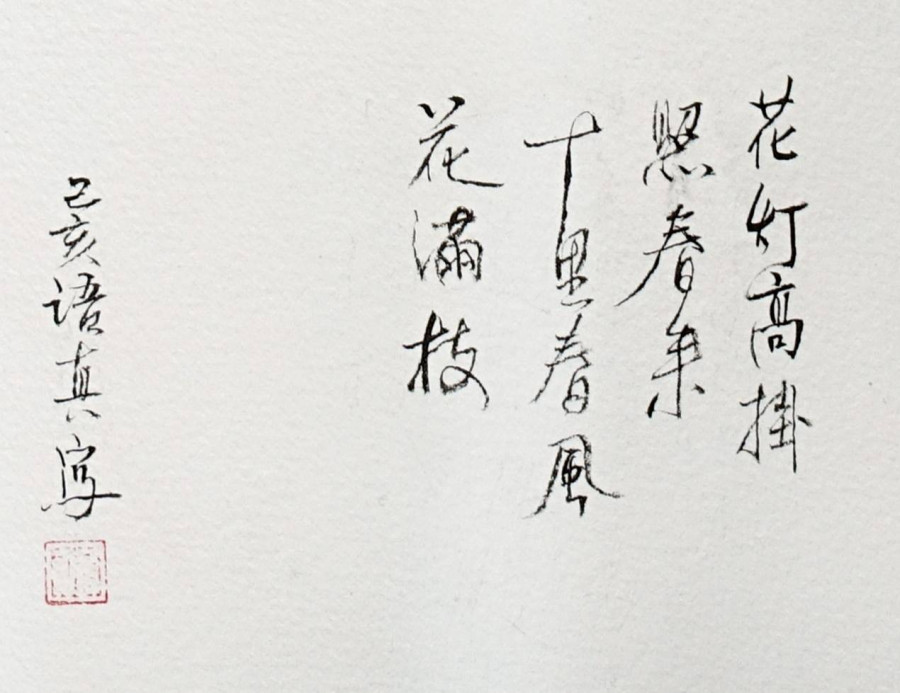 花灯高掛
照春来
十里春風
花滿枝
己亥语真写